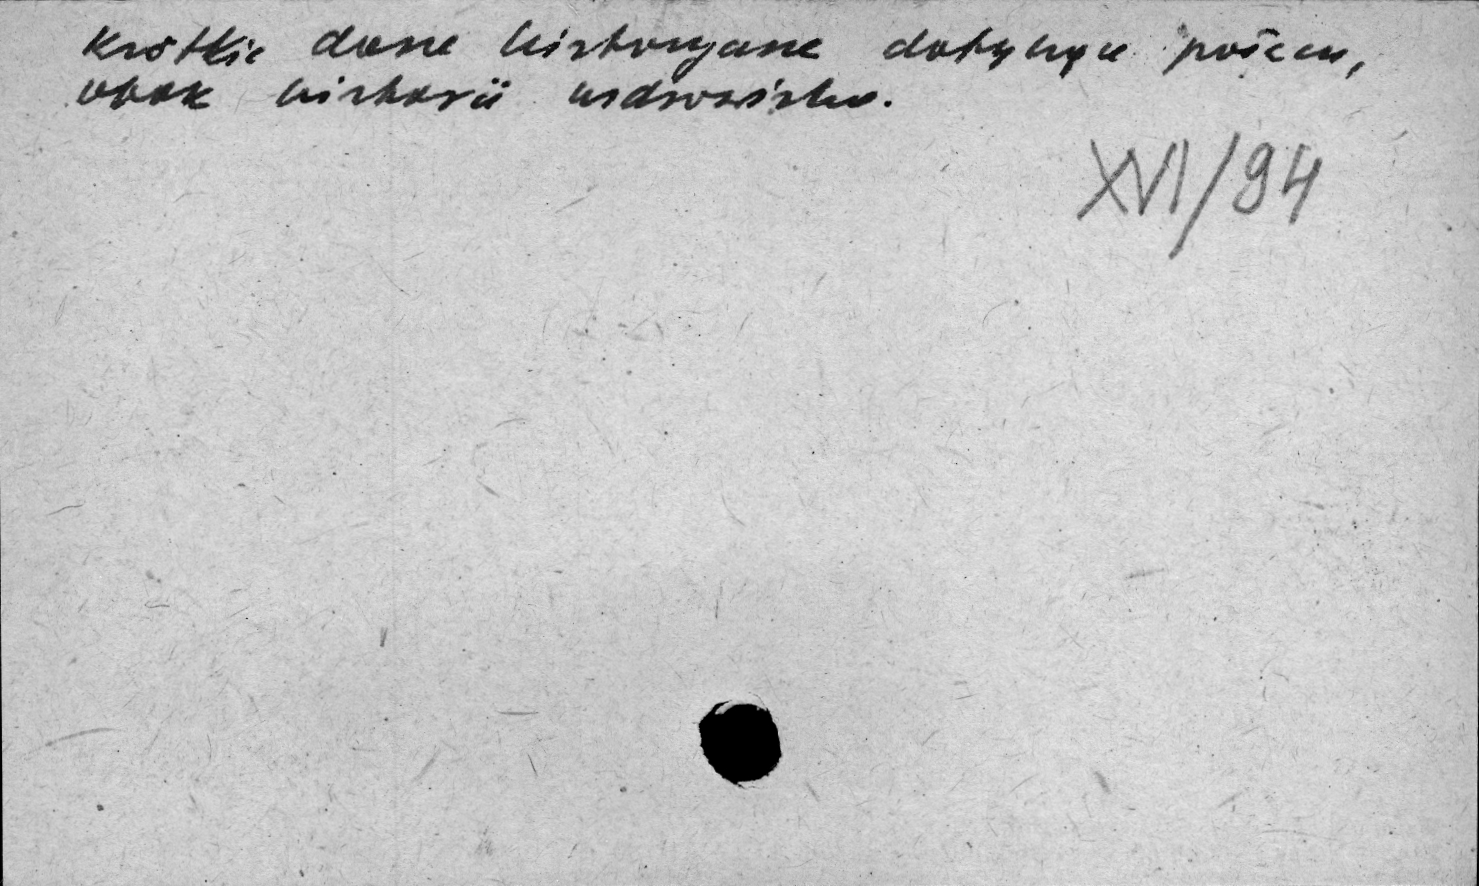 Krótkie dane historyczne dotyczące
obok historii uzdrowiska.
XVI/94